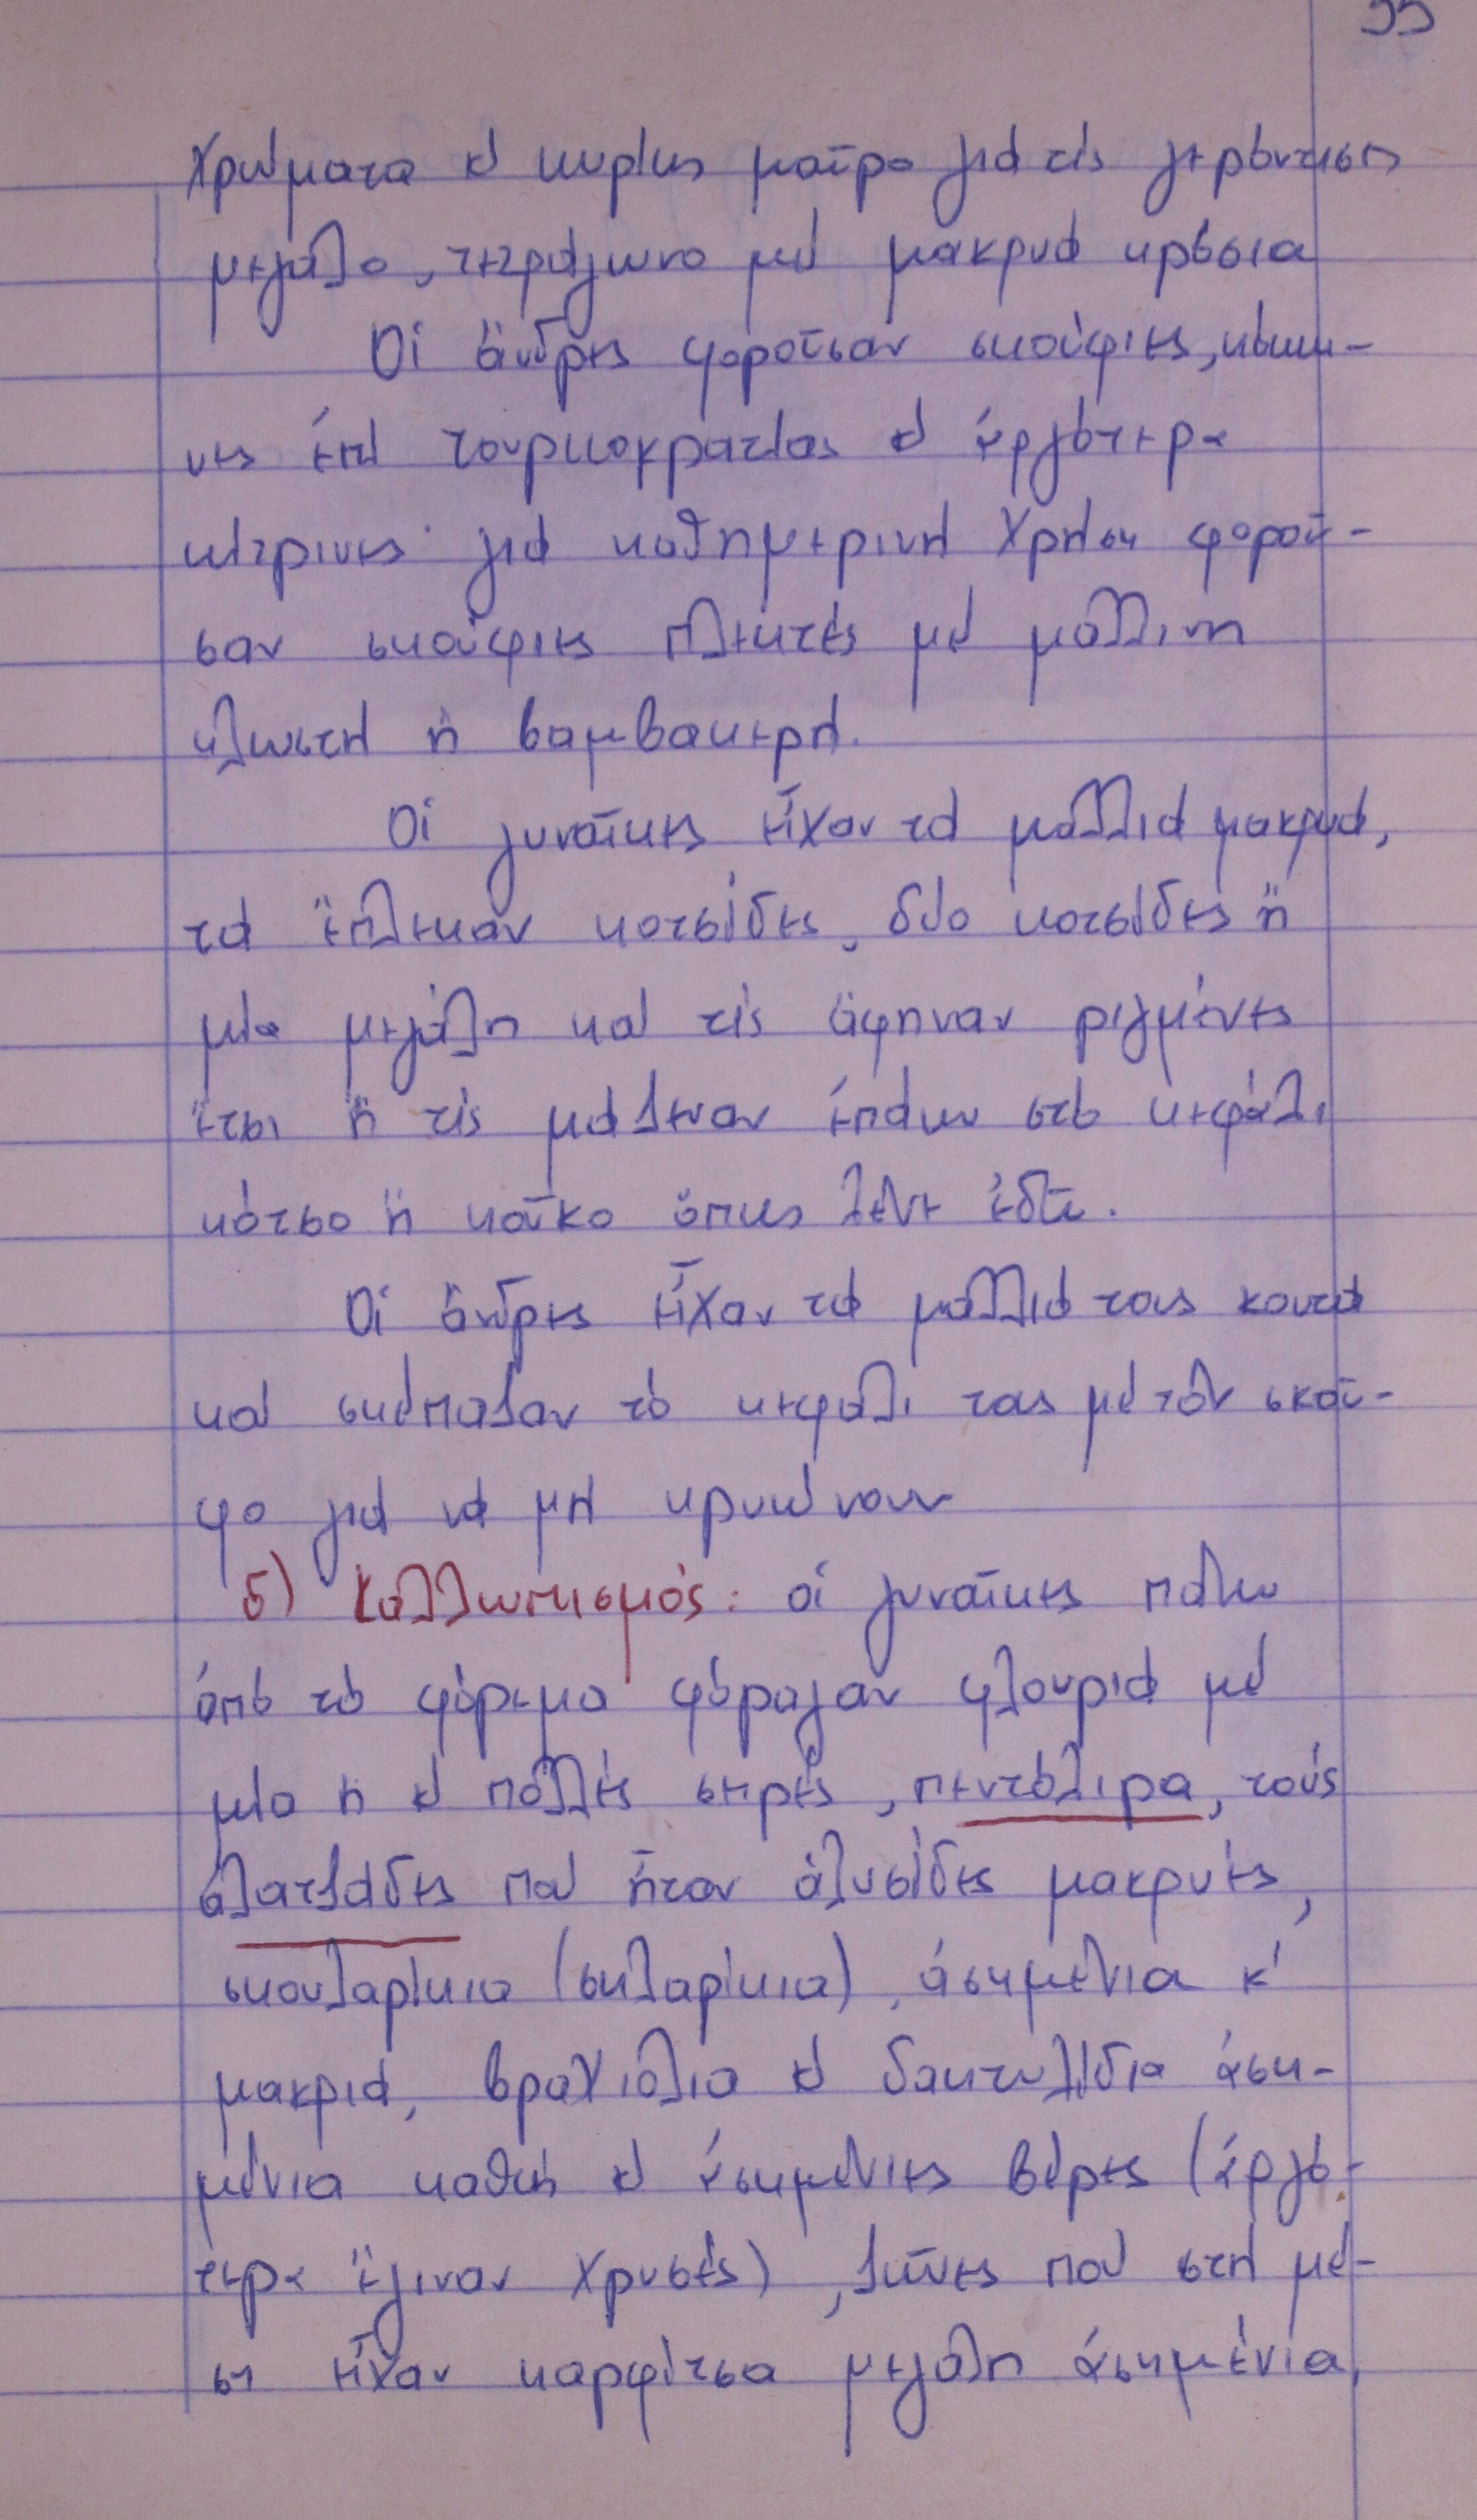 χρώματα κ' κυρίως μαῦρο γιά τίς γερόντισες
μεγάλο, τετράγωνο μέ μακρυά κρόσια
Οἱ ἄνδρες φοροῦσαν σκούφιες, κόκκι-
νες ἐπί τουρκοκρατίας κ' ἀργότερα
κίτρινες· γιά καθημερινή χρήση φοροῦ-
σαν σκούφιες πλεκτές μέ μάλλινη
κλωστή ἤ βαμβακερή.
Οἱ γυναῖκες εἶχαν τά μαλλιά μακρυά,
τά ἔπλεκαν κοτσίδες, δύο κοτσίδες ἤ
μία μεγάλη καί τίς ἄφηναν ριγμένες
ἔτσι ἤ τίς μάζευαν ἐπάνω στό κεφάλι
κότσο ἤ κοῦκο ὅπως λένε ἐδῶ.
Οἱ ἄνδρες εἶχαν τά μαλλιά τους κοντά
καί σκέπαζαν τό κεφάλι τους μέ τόν σκοῦ-
φο γιά νά μή κρυώνουν
δ) Καλλωπισμός: οἱ γυναῖκες πάνω
ἀπό τό φόρεμα φόραγαν φλουριά μέ
μία ἤ κ' πολλές σειρές, πεντόλιρα, τούς
ἀλατζάδες πού ἦταν ἁλυσίδες μακρυές,
σκουλαρίκια (σκλαρίκια), ἀσημένια κ'
μακριά, βραχιόλια κ' δακτυλίδια ἀση-
μένια καθώς κ' ἀσημένιες βέρες (ἀργό-
τερα ἔγιναν χρυσές), ζῶνες πού στή μέ-
ση εἶχαν καρφίτσα μεγάλη ἀσημένια,